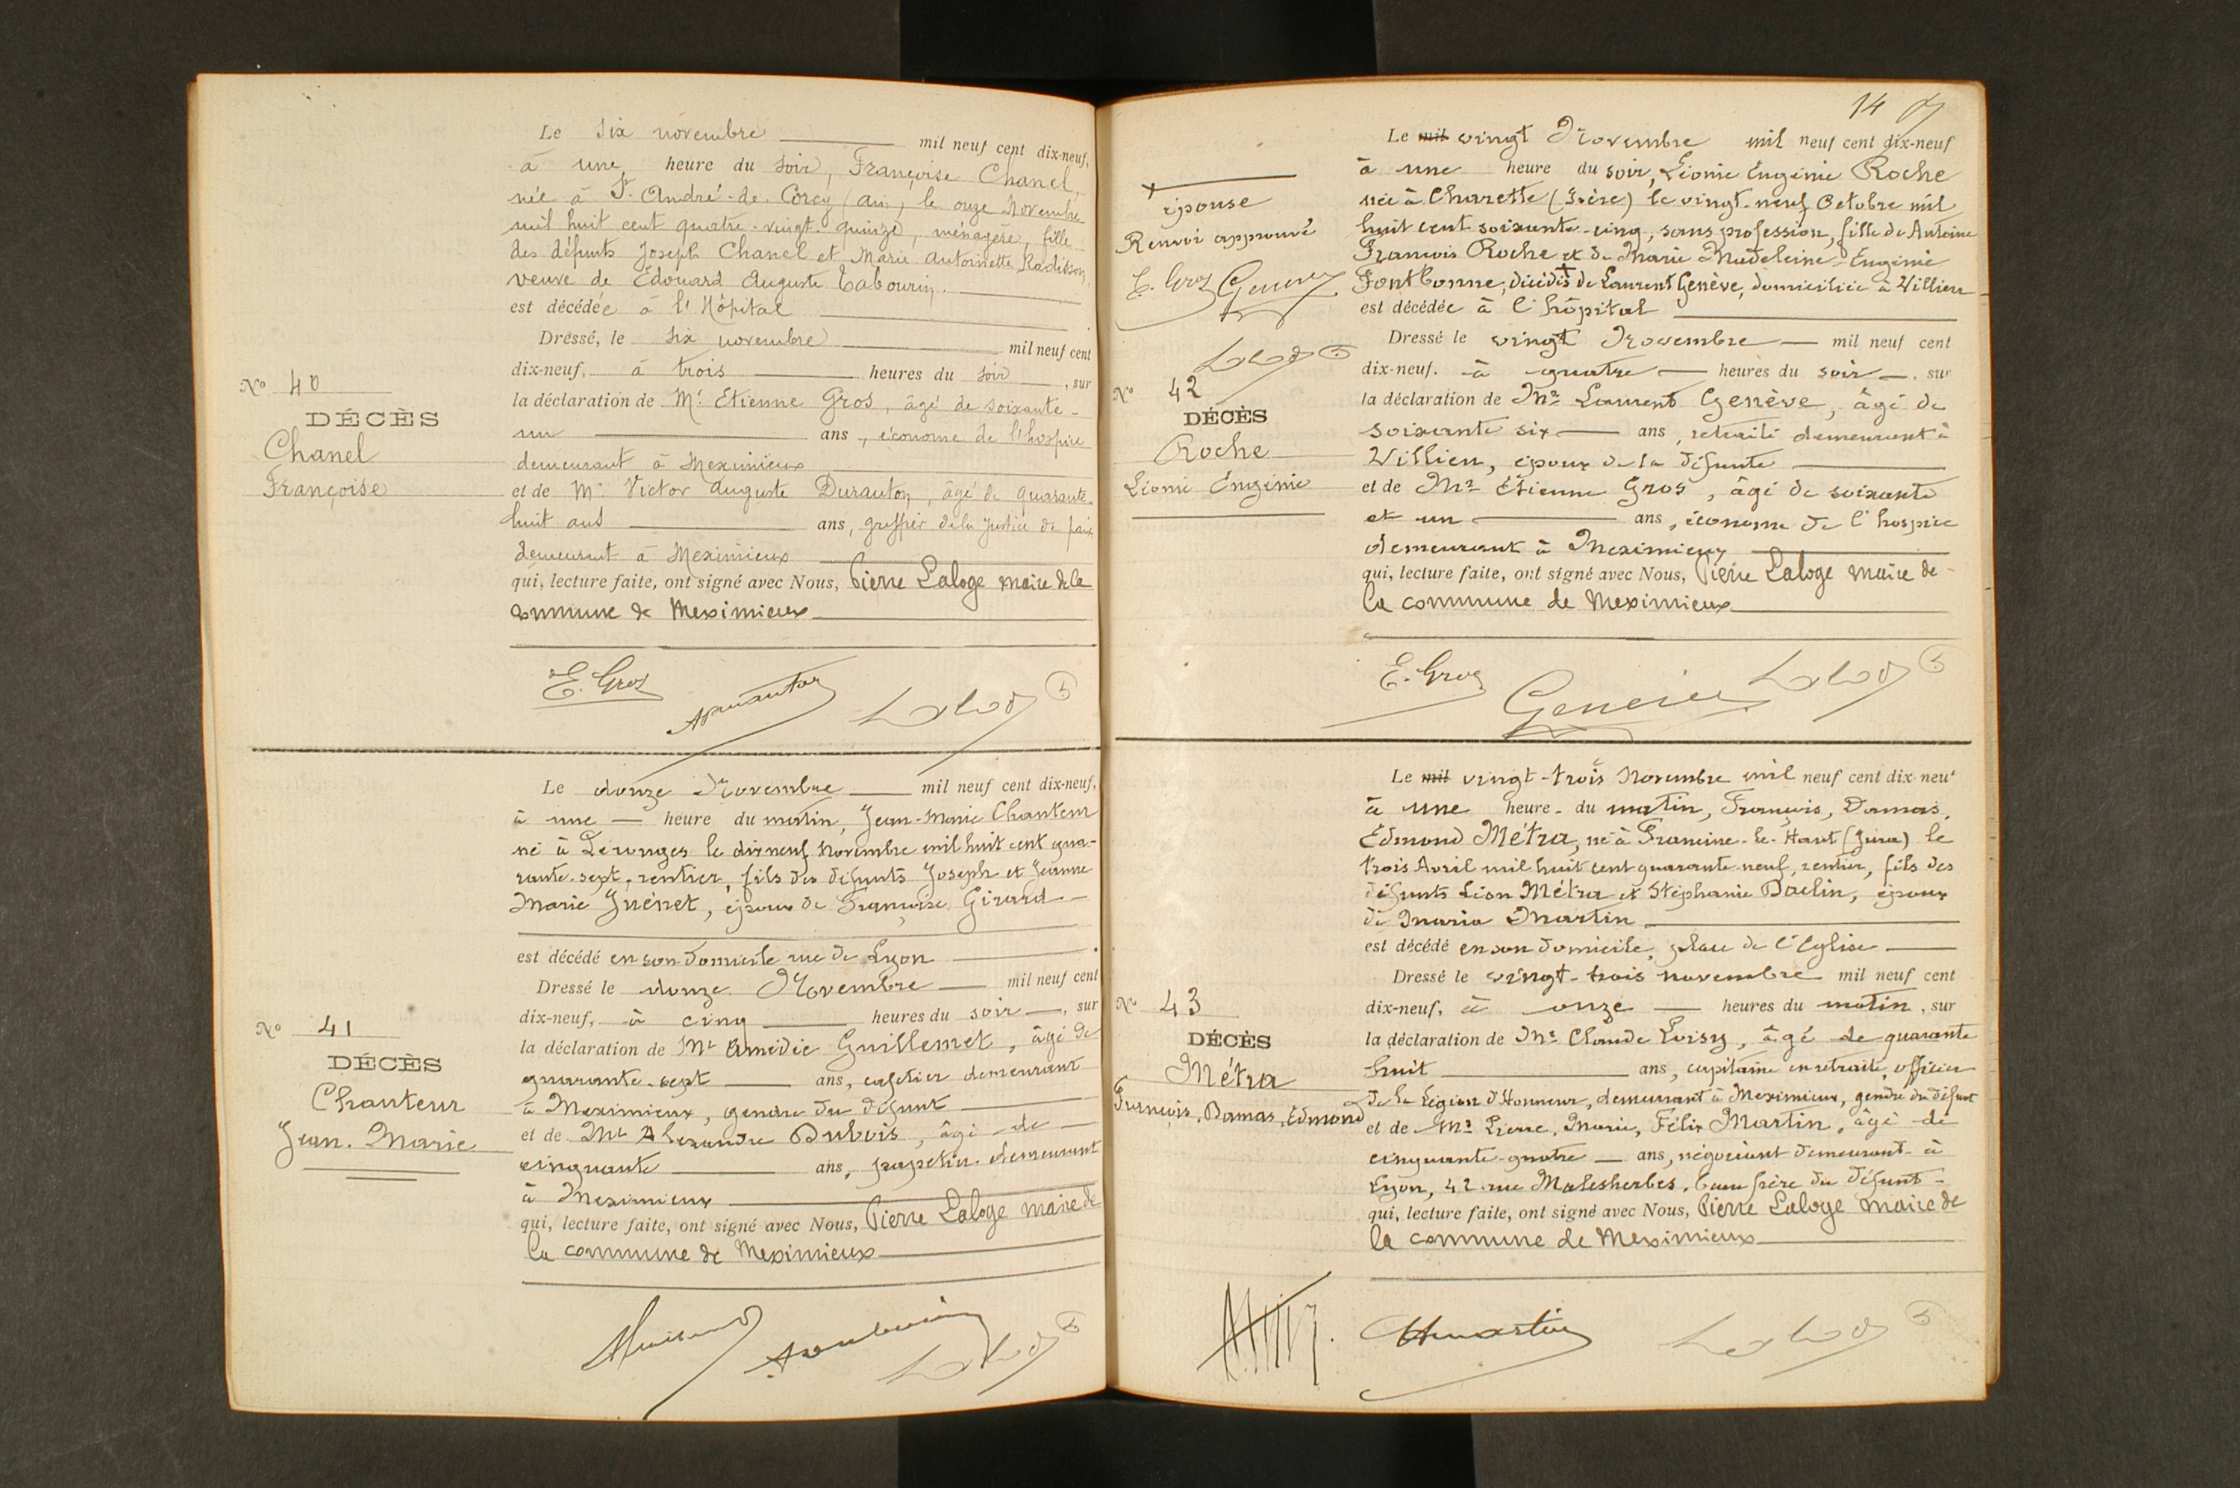 Le six novembre mil neuf cent dix-neuf,
à une heure du soir, Françoise Chanel,
née à St. André-de-Corcy (ain), le onze Novembre
mil huit cent quatre-vingt-quinze, ménagère, fille
des défunts Joseph Chanel et Marie Antoinette Radisson,
veuve de Edouard Auguste Tabourin.
est décédée à l'Hôpital
Dressé, le six novembre mil neuf cent
dix-neuf, à trois heures du soir, sur
No 40
la déclaration de Mr. Etienne Gros, âgé de soixante-
DÉCÈS
un ans, économe de l'hospice
Chanel
demeurant à Meximieux
Françoise
et de Mr. Victor Auguste Duranton, âgé de quarante-
huit ans ans, greffier de la justice de paix
demeurant à Meximieux
qui, lecture faite, ont signé avec Nous, Pierre Laloge maire de la
commune de Meximieux
E. Gros
Le douze Novembre mil neuf cent dix-neuf,
à une heure du matin, Jean-Marie Chanteur
né à Pérouges le dix neuf Novembre mil huit cent qua-
rante-sept, rentier, fils des défunts Joseph et Jeanne
Marie Guénet, époux de Françoise Girard
est décédé en son domicile rue de Lyon
Dressé le douze Novembre mil neuf cent
dix-neuf, à cinq heures du soir, sur
No 41
la déclaration de Mr Amédée Guillemet, âgé de
DÉCÈS
quarante-sept ans, cafetier demeurant
Chanteur
à Meximieux, gendre du défunt
Jean-Marie
et de Mr Alexandre Dubois, âgé de
cinquante ans, papetier demeurant
à Meximieux
qui, lecture faite, ont signé avec Nous, Pierre Laloge maire de
la commune de Meximieux
14
Le mil vingt Novembre mil neuf cent dix-neuf
à une heure du soir, Léonie Eugénie Roche
née à Charette (Isère) le vingt-neuf Octobre mil
huit cent soixante-cinq, sans profession, fille de Antoine
François Roche et de Marie Madeleine-Eugénie
Fontbonne, décédés de Laurent Genève, domiciliée à Villieu
est décédée à l'hôpital
épouse
Renvoi approuvé
E. Gros Genève
Dressé le vingt Novembre mil neuf cent
dix-neuf. à quatre heures du soir, sur
No 42
la déclaration de Mr Laurent Genève, âgé de
DÉCÈS
soixante six ans, retraité demeurant à
Roche
Villieu, époux de la défunte
Léonie Eugénie
et de Mr Etienne Gros, âgé de soixante
et un ans, économe de l'hospice
demeurant à Meximieux
qui, lecture faite, ont signé avec Nous, Pierre Laloge maire de
la commune de Meximieux
E. Gros
Genève
Le mil vingt-trois Novembre mil neuf cent dix neuf
à une heure du matin, François, Damas,
Edmond Métra, né à le-Haut (Jura) le
trois Avril mil huit cent quarante neuf, rentier, fils des
défunts Léon Métra et Stéphanie époux
de Maria Martin
est décédé en son domicile, place de l'Eglise
Dressé le vingt-trois novembre mil neuf cent
dix-neuf, à onze heures du matin, sur
No 43
la déclaration de Mr Claude Loisy, âgé de quarante
DÉCÈS
huit ans, capitaine en retraite, officier
Métra
de la Légion d'Honneur, demeurant à Meximieux, gendre du défunt
François, Damas, Edmond
et de Mr Pierre, Marie, Félix Martin, âgé de
cinquante-quatre ans, négociant demeurant à
Lyon, 42 rue Malesherbes, beau frère du défunt
qui, lecture faite, ont signé avec Nous, Pierre Laloge maire de
la commune de Meximieux